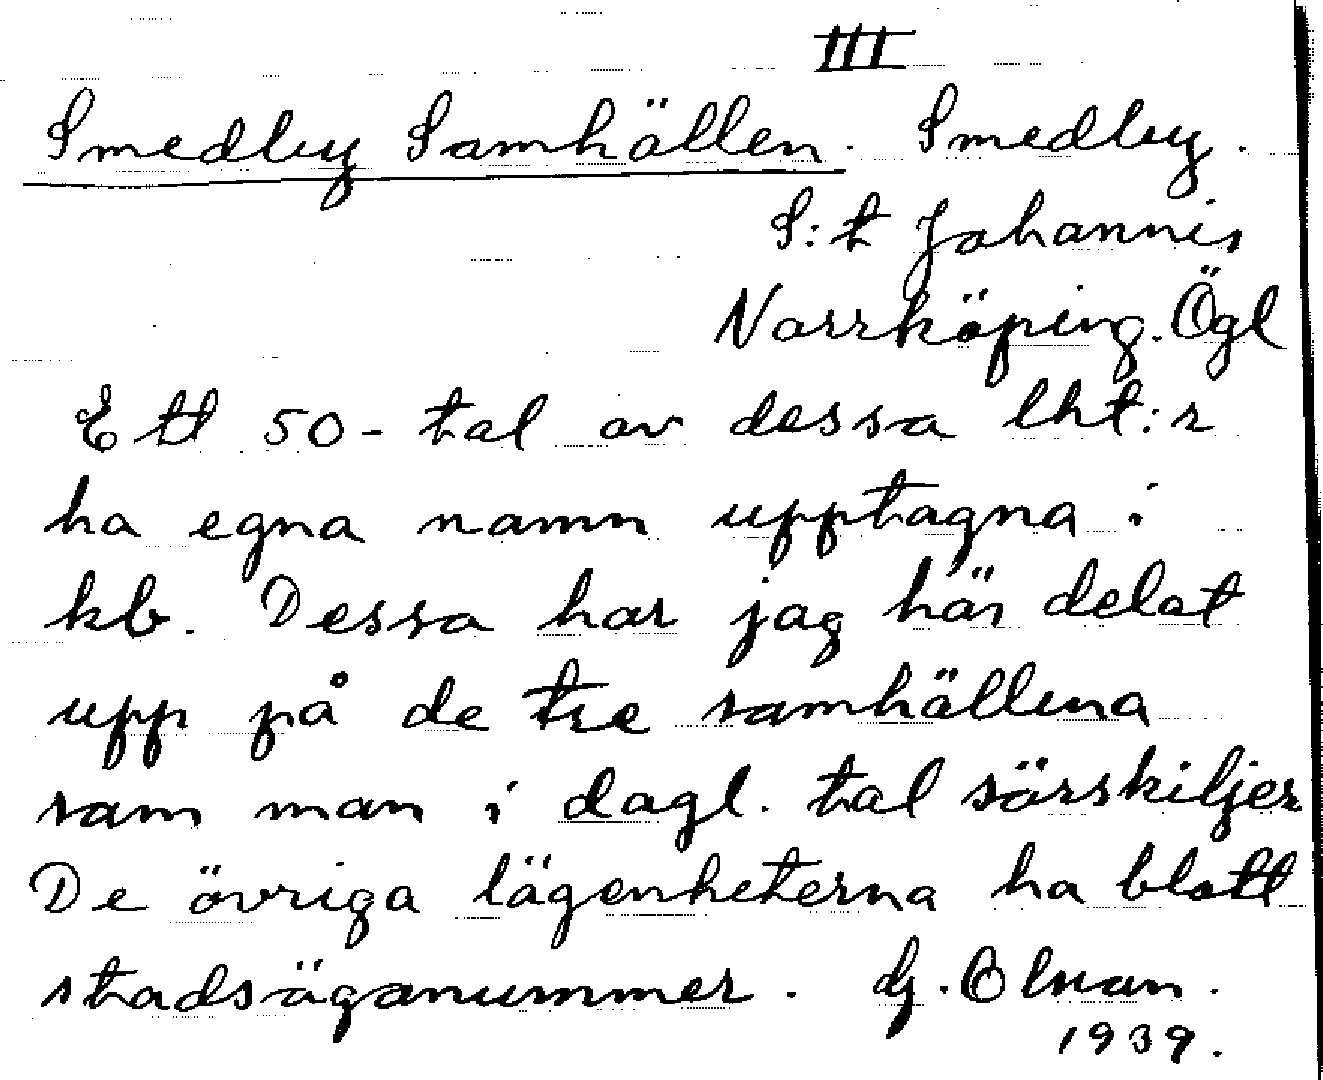 III
Smedby Samhällen. Smedby.
S:t Johannis
Norrköping. Ögl
Ett 50-tal av dessa lht:r
ha egna namn upptagna i
kb. Dessa har jag här delat
upp på de tre samhällena
som man i dagl. tal särskiljer
De övriga lägenheterna ha blott
stadsäganummer. G. Olsson.
1939.